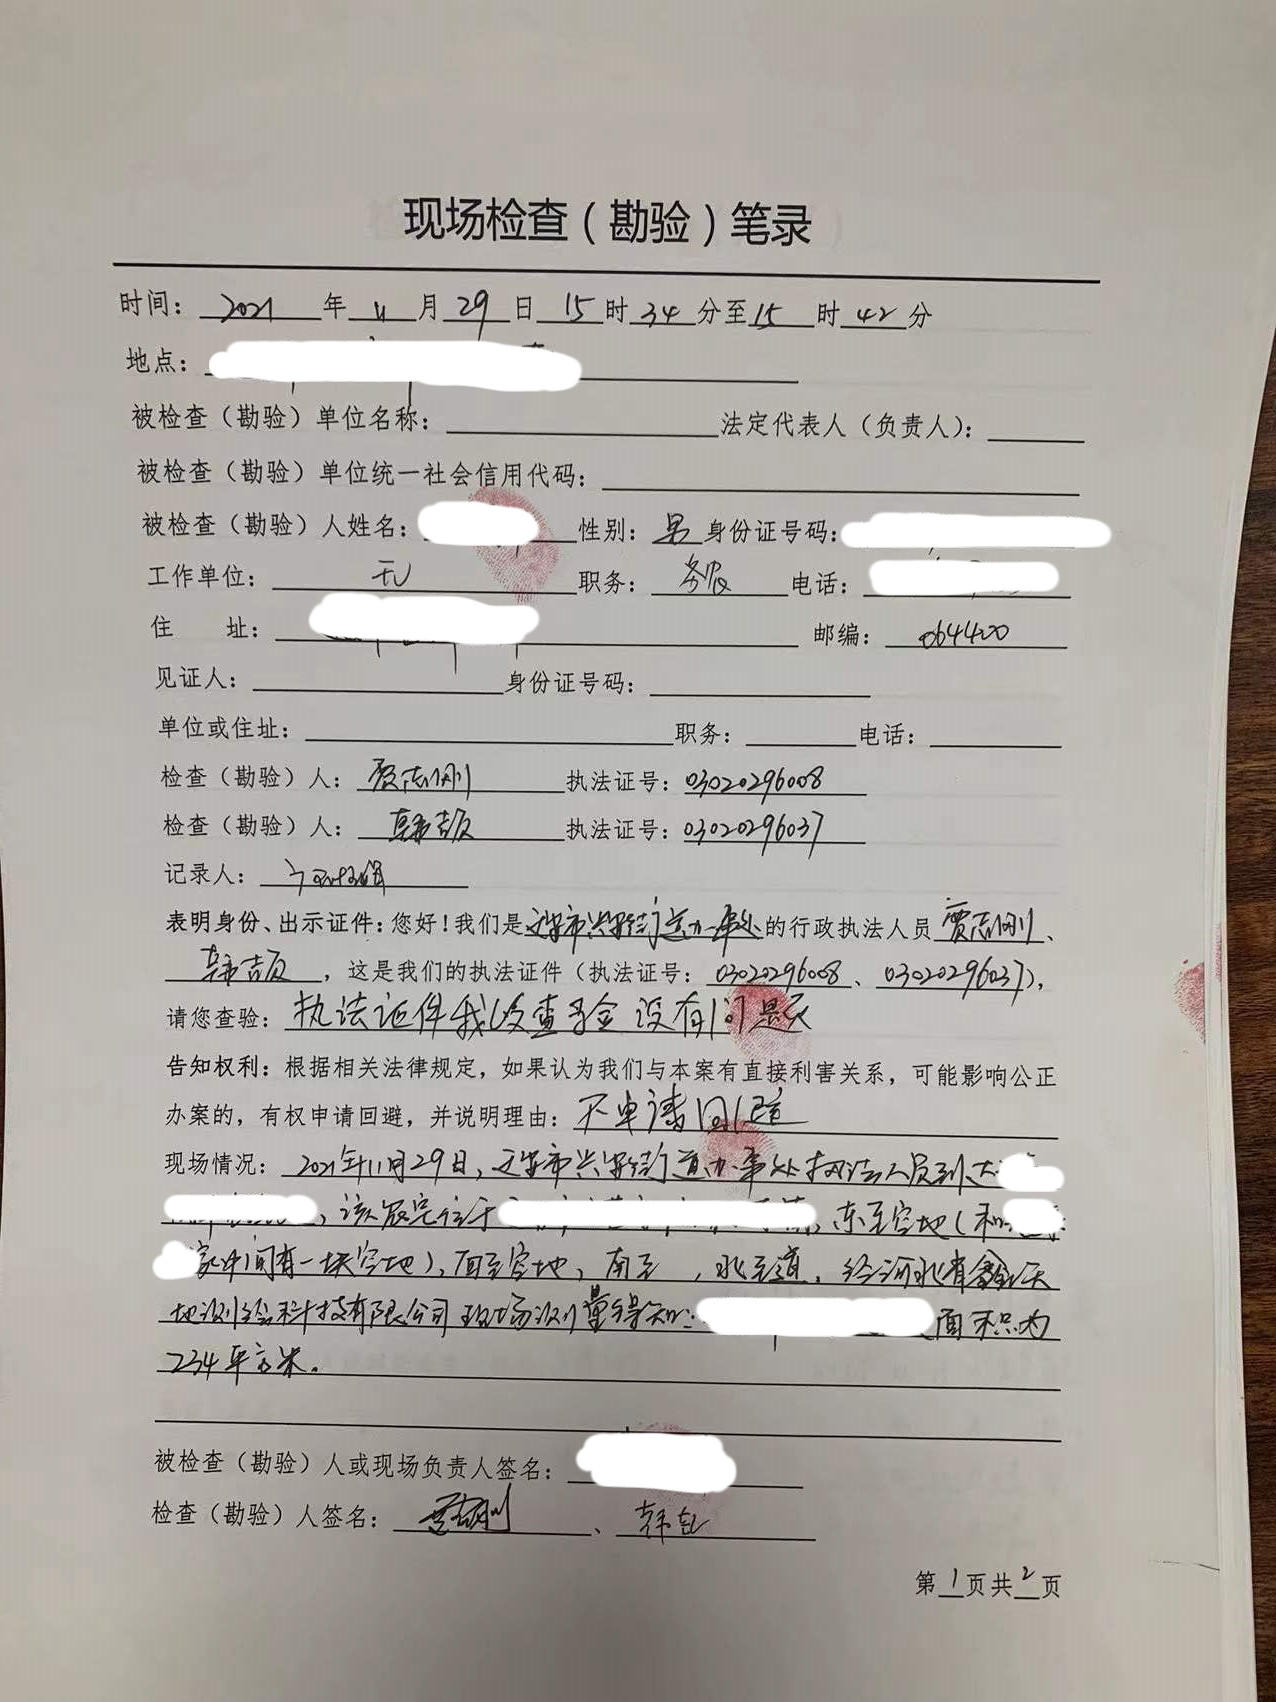 现场检查（勘验）笔录
时间： 2021 年 11 月 29 日 15 时 34 分至 15 时 42 分
地点：
被检查（勘验）单位名称： 法定代表人（负责人）：
被检查（勘验）单位统一社会信用代码：
被检查（勘验）人姓名： 性别： 男 身份证号码：
工作单位： 无 职务： 务农 电话：
住 址： 邮编： 064400
见证人： 身份证号码：
单位或住址： 职务： 电话：
检查（勘验）人： 贾志刚 执法证号： 03020296008
检查（勘验）人： 韩 执法证号： 03020296037
记录人：
表明身份、出示证件：您好！我们是迁安市兴安街道办事处的行政执法人员 贾志刚 、
韩 ，这是我们的执法证件（执法证号： 03020296008 、 03020296037），
请您查验： 执法证件我以查验 没有问题
告知权利：根据相关法律规定，如果认为我们与本案有直接利害关系，可能影响公正
办案的，有权申请回避，并说明理由： 不申请回避
现场情况： 2021年11月29日，迁安市兴安街道办事处执法人员到大
，该住宅位于 ，东至空地（和
家中间有一块空地），西至空地，南至 ，北至道，经河北省天
地测绘科技有限公司现场测量得知： 面积为
234平方米。
被检查（勘验）人或现场负责人签名：
检查（勘验）人签名： 贾志刚 、 韩
第 1 页共 2 页